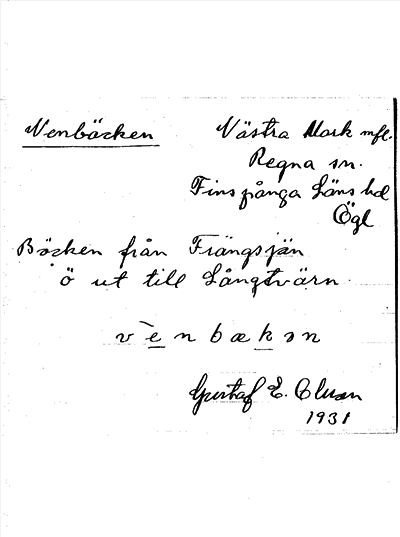 Venbäcken
Västra Mark mfl.
Regna sn.
Finspånga Läns hd
Ögl
Bäcken från Frängsjön
ö ut till Långtvärn
vèn bækən
Gustaf E. Olsson
1931